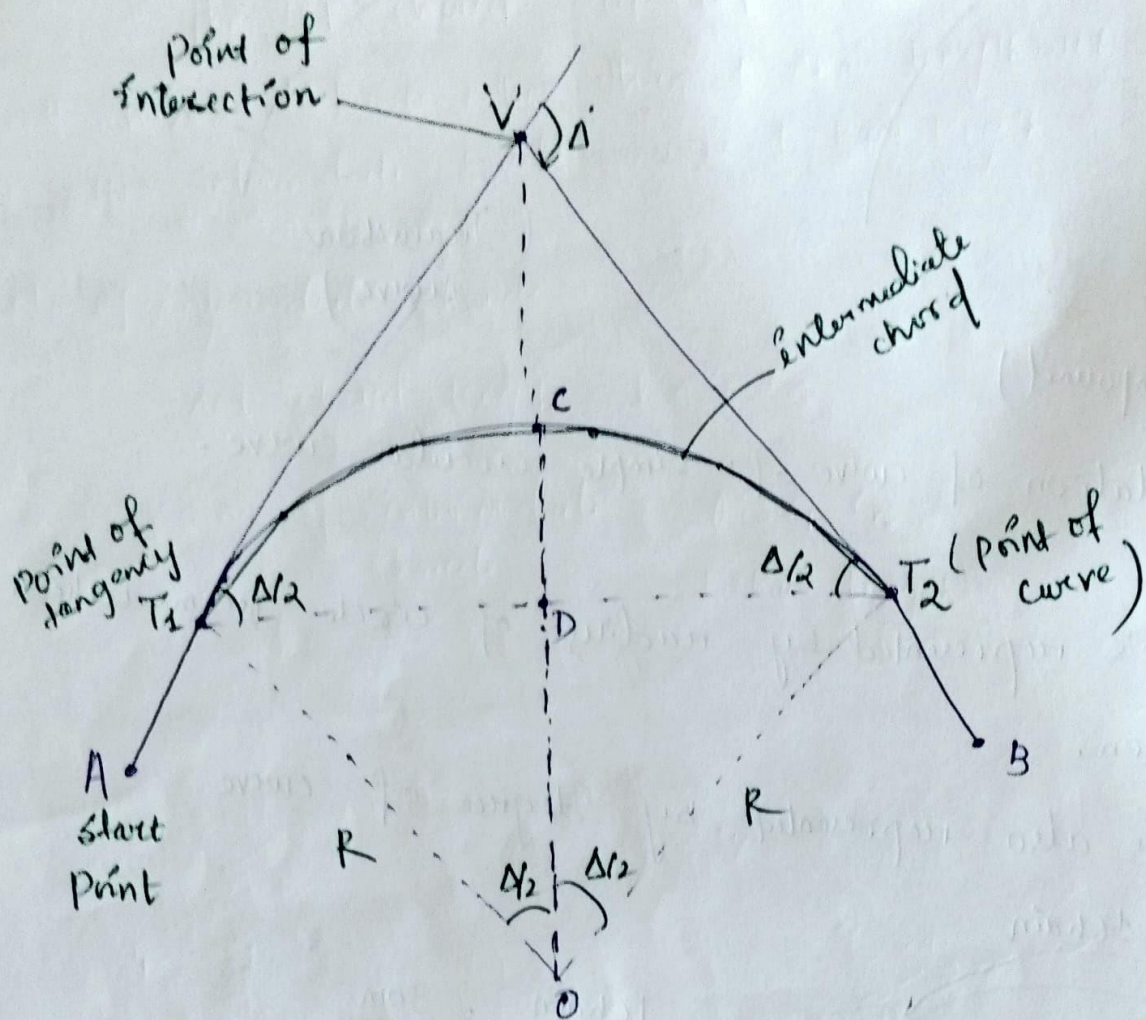 Point of
intersection
V
Δ
intermediate
chord
C
Point of
tangency
T1
Δ/2
D
Δ/2
T2 (Point of
curve)
A
Start
Point
B
R
R
Δ/2
Δ/2
O